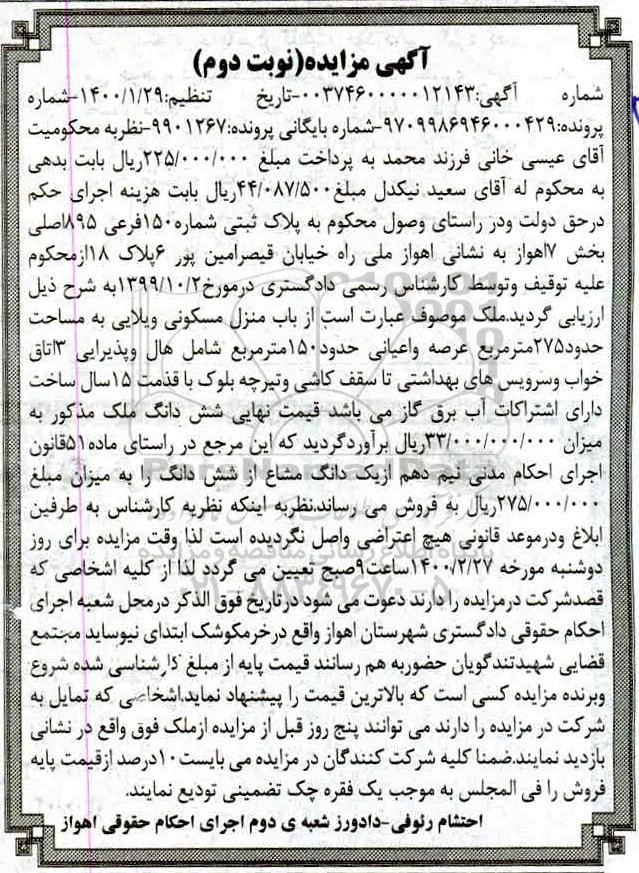 آگهی مزایده(نوبت دوم)
شماره آگهی:۰۰۳۷۴۶۰۰۰۰۰۱۲۱۴۳-تاریخ تنظیم:۱۴۰۰/۱/۲۹-شماره
پرونده:۹۷۰۹۹۸۶۹۴۶۰۰۰۴۲۹-شماره بایگانی پرونده:۹۹۰۱۲۶۷-نظربه محکومیت
آقای عیسی خانی فرزند محمد به پرداخت مبلغ ۲۲۵/۰۰۰/۰۰۰ریال بابت بدهی
به محکوم له آقای سعید نیکدل مبلغ۴۴/۰۸۷/۵۰۰ریال بابت هزینه اجرای حکم
درحق دولت ودر راستای وصول محکوم به پلاک ثبتی شماره۱۵۰فرعی ۸۹۵اصلی
بخش ۷اهواز به نشانی اهواز ملی راه خیابان قیصرامین پور ۶پلاک ۱۸ازمحکوم
علیه توقیف وتوسط کارشناس رسمی دادگستری درمورخ۱۳۹۹/۱۰/۲به شرح ذیل
ارزیابی گردید.ملک موصوف عبارت است از باب منزل مسکونی ویلایی به مساحت
حدود۲۷۵مترمربع عرصه واعیانی حدود۱۵۰مترمربع شامل هال وپذیرایی ۳اتاق
خواب وسرویس های بهداشتی تا سقف کاشی وتیرچه بلوک با قدمت ۱۵سال ساخت
دارای اشتراکات آب برق گاز می باشد قیمت نهایی شش دانگ ملک مذکور به
میزان ۳۳/۰۰۰/۰۰۰/۰۰۰ریال برآوردگردید که این مرجع در راستای ماده۵۱قانون
اجرای احکام مدنی نیم دهم ازیک دانگ مشاع از شش دانگ را به میزان مبلغ
۲۷۵/۰۰۰/۰۰۰ریال به فروش می رساند.نظربه اینکه نظریه کارشناس به طرفین
ابلاغ ودرموعد قانونی هیچ اعتراضی واصل نگردیده است لذا وقت مزایده برای روز
دوشنبه مورخه ۱۴۰۰/۲/۲۷ساعت۹صبح تعیین می گردد لذا از کلیه اشخاصی که
قصدشرکت درمزایده را دارند دعوت می شود درتاریخ فوق الذکر درمحل شعبه اجرای
احکام حقوقی دادگستری شهرستان اهواز واقع درخرمکوشک ابتدای نیوساید مجتمع
قضایی شهیدتندگویان حضوربه هم رسانند قیمت پایه از مبلغ کارشناسی شده شروع
وبرنده مزایده کسی است که بالاترین قیمت را پیشنهاد نماید.اشخاصی که تمایل به
شرکت در مزایده را دارند می توانند پنج روز قبل از مزایده ازملک فوق واقع در نشانی
بازدید نمایند.ضمنا کلیه شرکت کنندگان در مزایده می بایست۱۰درصد ازقیمت پایه
فروش را فی المجلس به موجب یک فقره چک تضمینی تودیع نمایند.
احتشام رئوفی-دادورز شعبه ی دوم اجرای احکام حقوقی اهواز